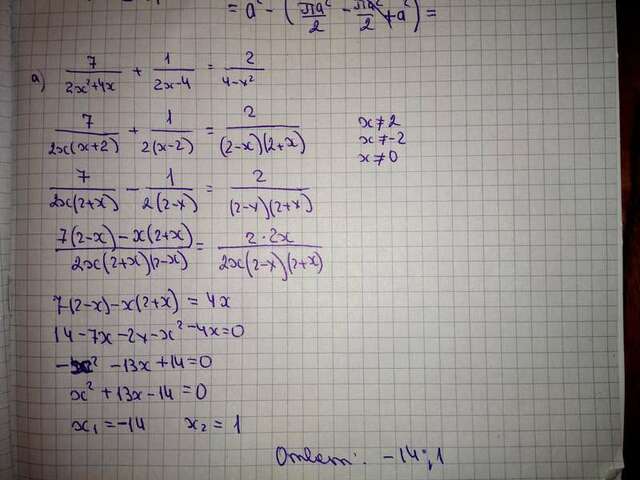 = a² - (πa²/2 - πa²/2 + a) =
a) 7/(2x²+4x) + 1/(2x-4) = 2/(4-x²)
7/(2x(x+2)) + 1/(2(x-2)) = 2/((2-x)(2+x)) x≠2
x≠-2
x≠0
7/(2x(2+x)) - 1/(2(2-x)) = 2/((2-x)(2+x))
(7(2-x) - x(2+x))/(2x(2+x)(2-x)) = (2·2x)/(2x(2-x)(2+x))
7(2-x) - x(2+x) = 4x
14 - 7x - 2x - x² - 4x = 0
-x² - 13x + 14 = 0
x² + 13x - 14 = 0
x₁ = -14 x₂ = 1
Ответ: -14; 1